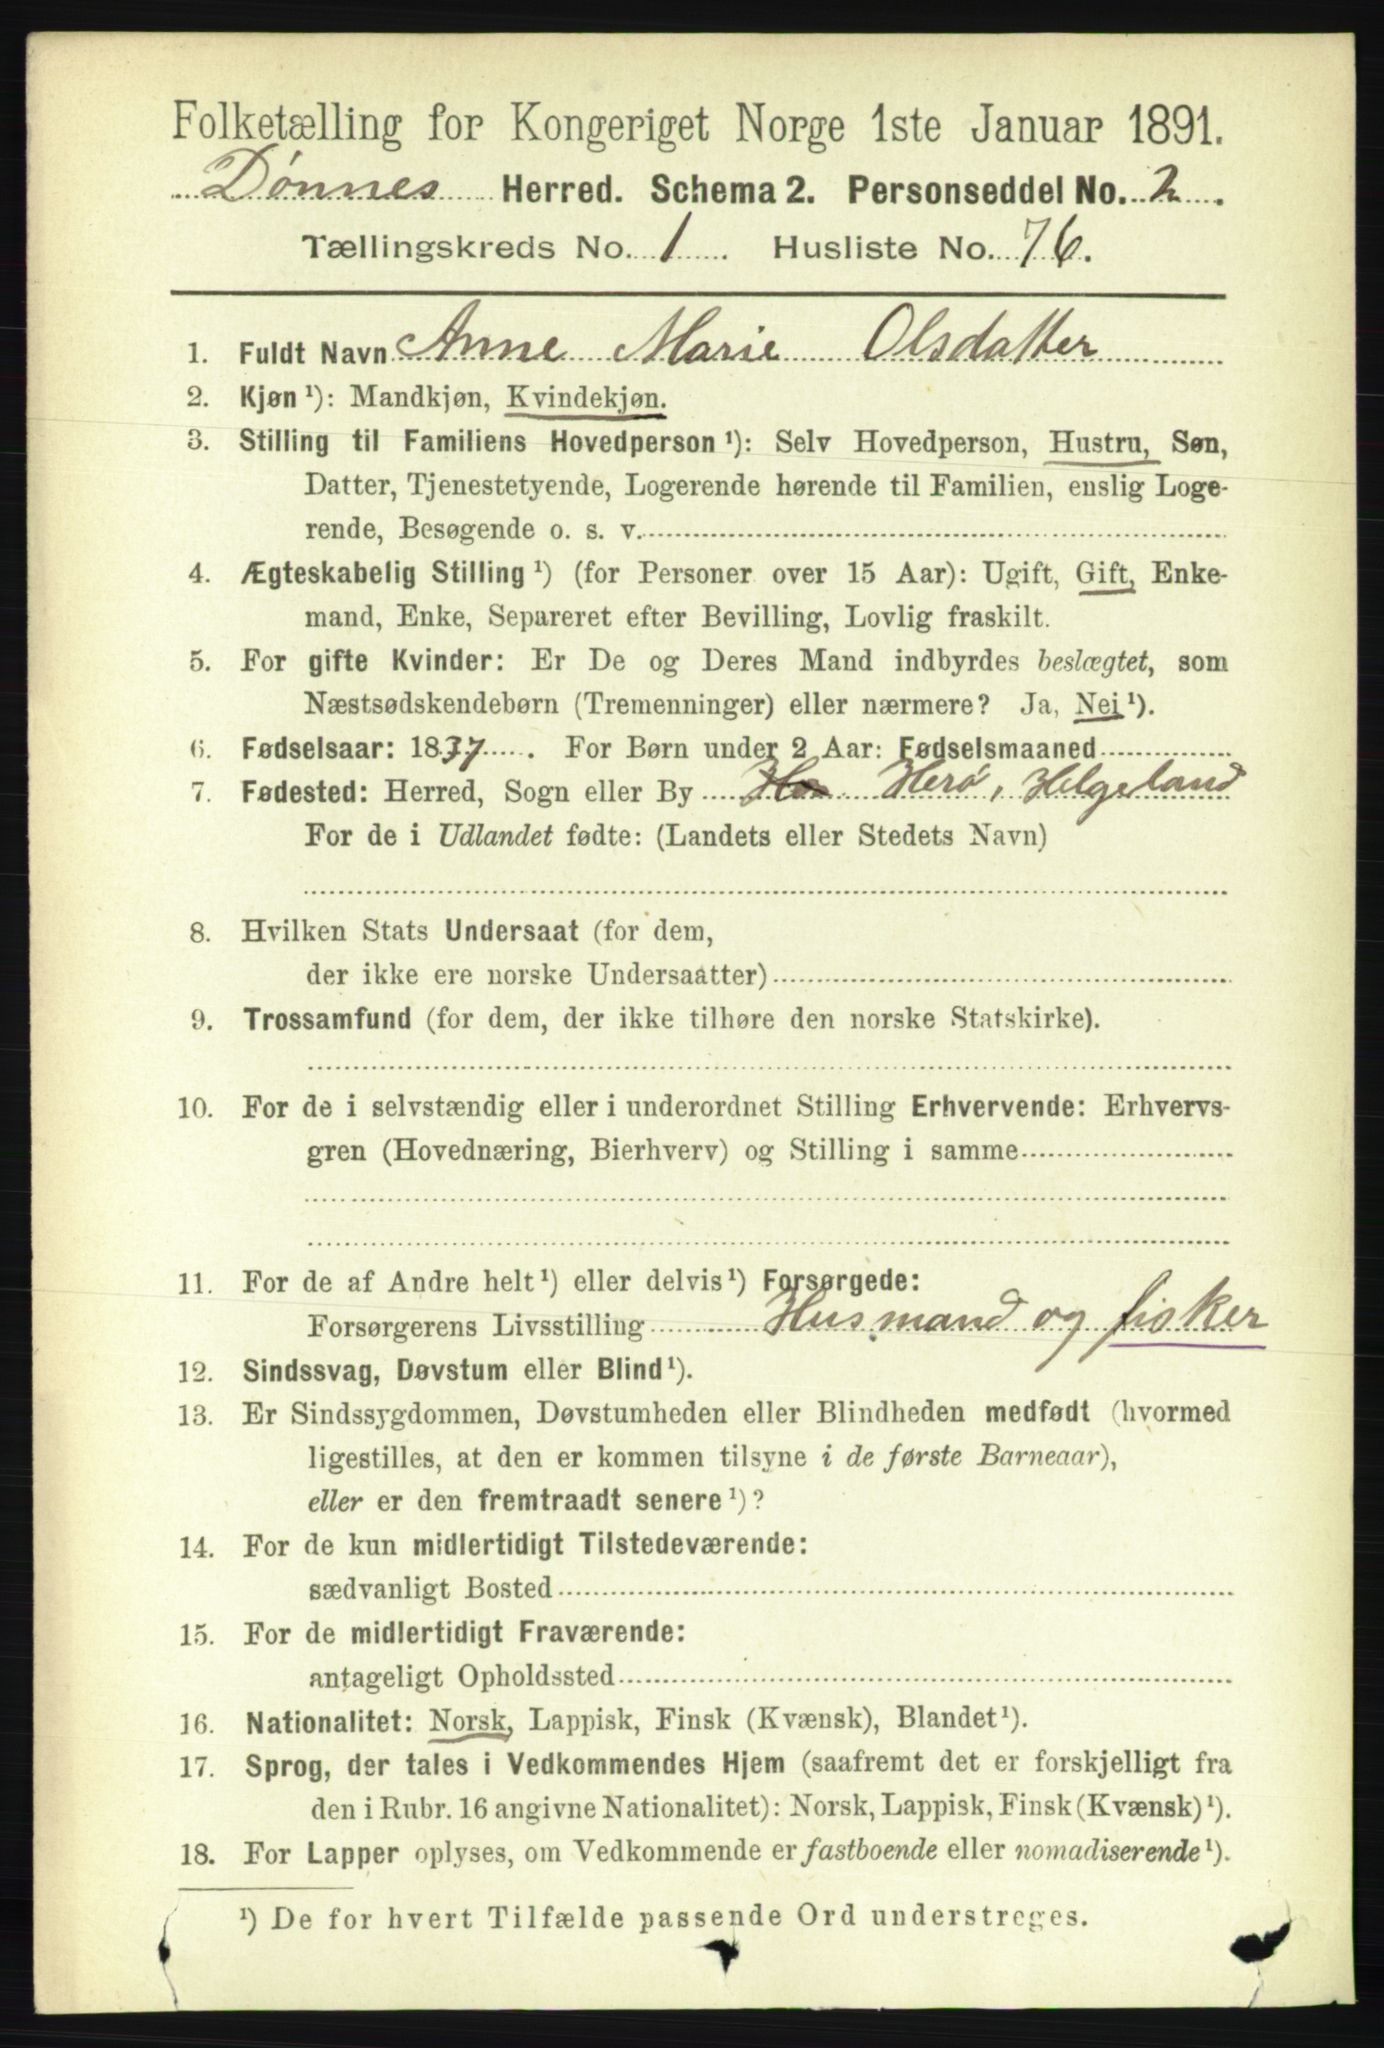 Folketælling for Kongeriget Norge 1ste Januar 1891.
Dønnes Herred. Schema 2. Personseddel No. 2.
Tællingskreds No. 1. Husliste No. 76.
1. Fuldt Navn Anne Marie Olsdatter
2. Kjøn ¹): Mandkjøn, Kvindekjøn.
3. Stilling til Familiens Hovedperson ¹): Selv Hovedperson, Hustru, Søn,
Datter, Tjenestetyende, Logerende hørende til Familien, enslig Loge-
rende, Besøgende o. s. v.
4. Ægteskabelig Stilling ¹) (for Personer over 15 Aar): Ugift, Gift, Enke-
mand, Enke, Separeret efter Bevilling, Lovlig fraskilt.
5. For gifte Kvinder: Er De og Deres Mand indbyrdes beslægtet, som
Næstsødskendebørn (Tremenninger) eller nærmere? Ja, Nei ¹).
6. Fødselsaar: 1837. For Børn under 2 Aar: Fødselsmaaned
7. Fødested: Herred, Sogn eller By Herø, Helgeland
For de i Udlandet fødte: (Landets eller Stedets Navn)
8. Hvilken Stats Undersaat (for dem,
der ikke ere norske Undersaatter)
9. Trossamfund (for dem, der ikke tilhøre den norske Statskirke).
10. For de i selvstændig eller i underordnet Stilling Erhvervende: Erhvervs-
gren (Hovednæring, Bierhverv) og Stilling i samme
11. For de af Andre helt ¹) eller delvis ¹) Forsørgede:
Forsørgerens Livsstilling Husmand og fisker
12. Sindssvag, Døvstum eller Blind ¹).
13. Er Sindssygdommen, Døvstumheden eller Blindheden medfødt (hvormed
ligestilles, at den er kommen tilsyne i de første Barneaar),
eller er den fremtraadt senere ¹)?
14. For de kun midlertidigt Tilstedeværende:
sædvanligt Bosted
15. For de midlertidigt Fraværende:
antageligt Opholdssted
16. Nationalitet: Norsk, Lappisk, Finsk (Kvænsk), Blandet ¹).
17. Sprog, der tales i Vedkommendes Hjem (saafremt det er forskjelligt fra
den i Rubr. 16 angivne Nationalitet): Norsk, Lappisk, Finsk (Kvænsk) ¹).
18. For Lapper oplyses, om Vedkommende er fastboende eller nomadiserende ¹).
¹) De for hvert Tilfælde passende Ord understreges.